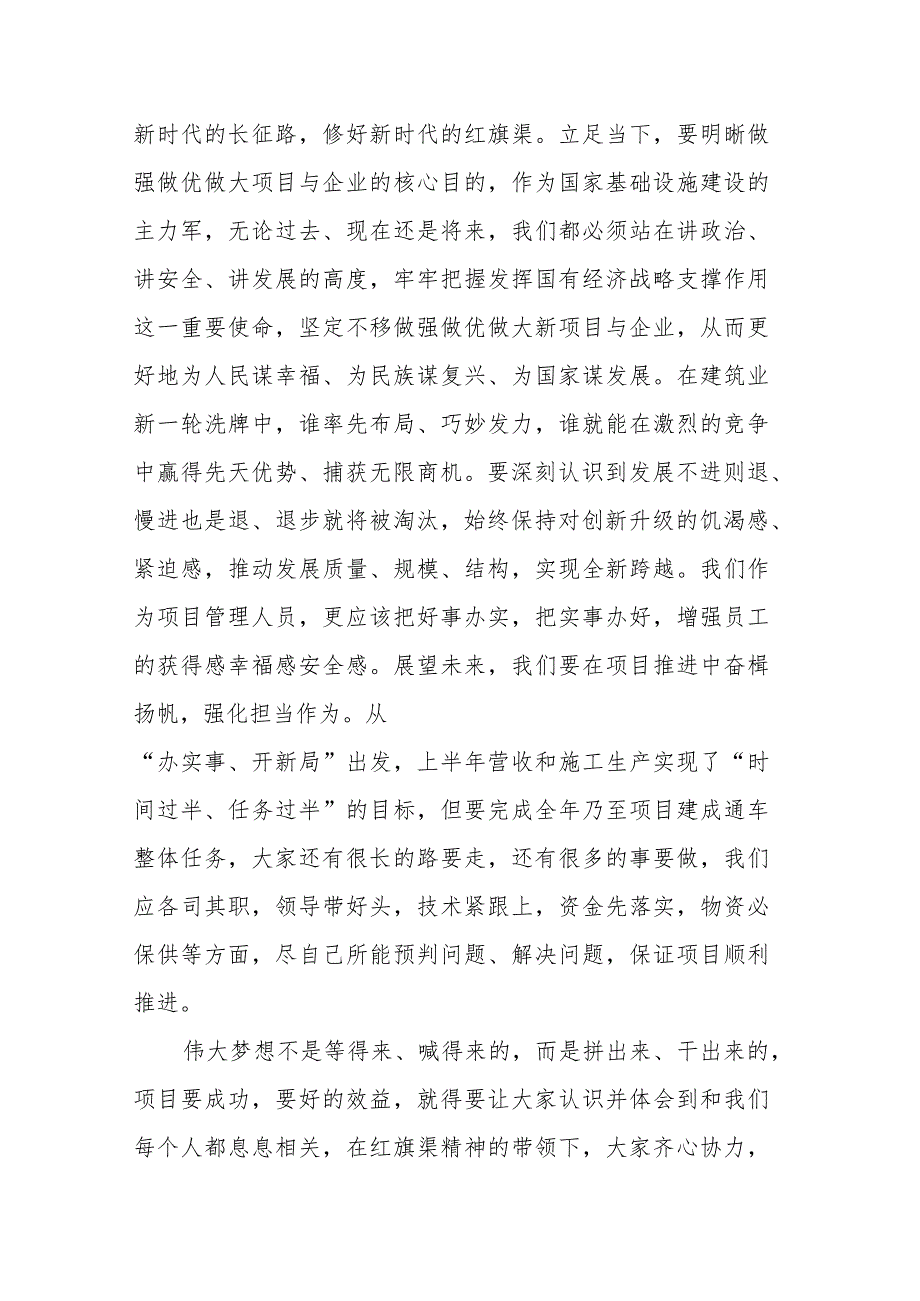 新时代的长征路，修好新时代的红旗渠。立足当下，要明晰做
强做优做大项目与企业的核心目的，作为国家基础设施建设的
主力军，无论过去、现在还是将来，我们都必须站在讲政治、
讲安全、讲发展的高度，牢牢把握发挥国有经济战略支撑作用
这一重要使命，坚定不移做强做优做大新项目与企业，从而更
好地为人民谋幸福、为民族谋复兴、为国家谋发展。在建筑业
新一轮洗牌中，谁率先布局、巧妙发力，谁就能在激烈的竞争
中赢得先天优势、捕获无限商机。要深刻认识到发展不进则退、
慢进也是退、退步就将被淘汰，始终保持对创新升级的饥渴感、
紧迫感，推动发展质量、规模、结构，实现全新跨越。我们作
为项目管理人员，更应该把好事办实，把实事办好，增强员工
的获得感幸福感安全感。展望未来，我们要在项目推进中奋楫
扬帆，强化担当作为。从
“办实事、开新局”出发，上半年营收和施工生产实现了“时
间过半、任务过半”的目标，但要完成全年乃至项目建成通车
整体任务，大家还有很长的路要走，还有很多的事要做，我们
应各司其职，领导带好头，技术紧跟上，资金先落实，物资必
保供等方面，尽自己所能预判问题、解决问题，保证项目顺利
推进。
伟大梦想不是等得来、喊得来的，而是拼出来、干出来的，
项目要成功，要好的效益，就得要让大家认识并体会到和我们
每个人都息息相关，在红旗渠精神的带领下，大家齐心协力，